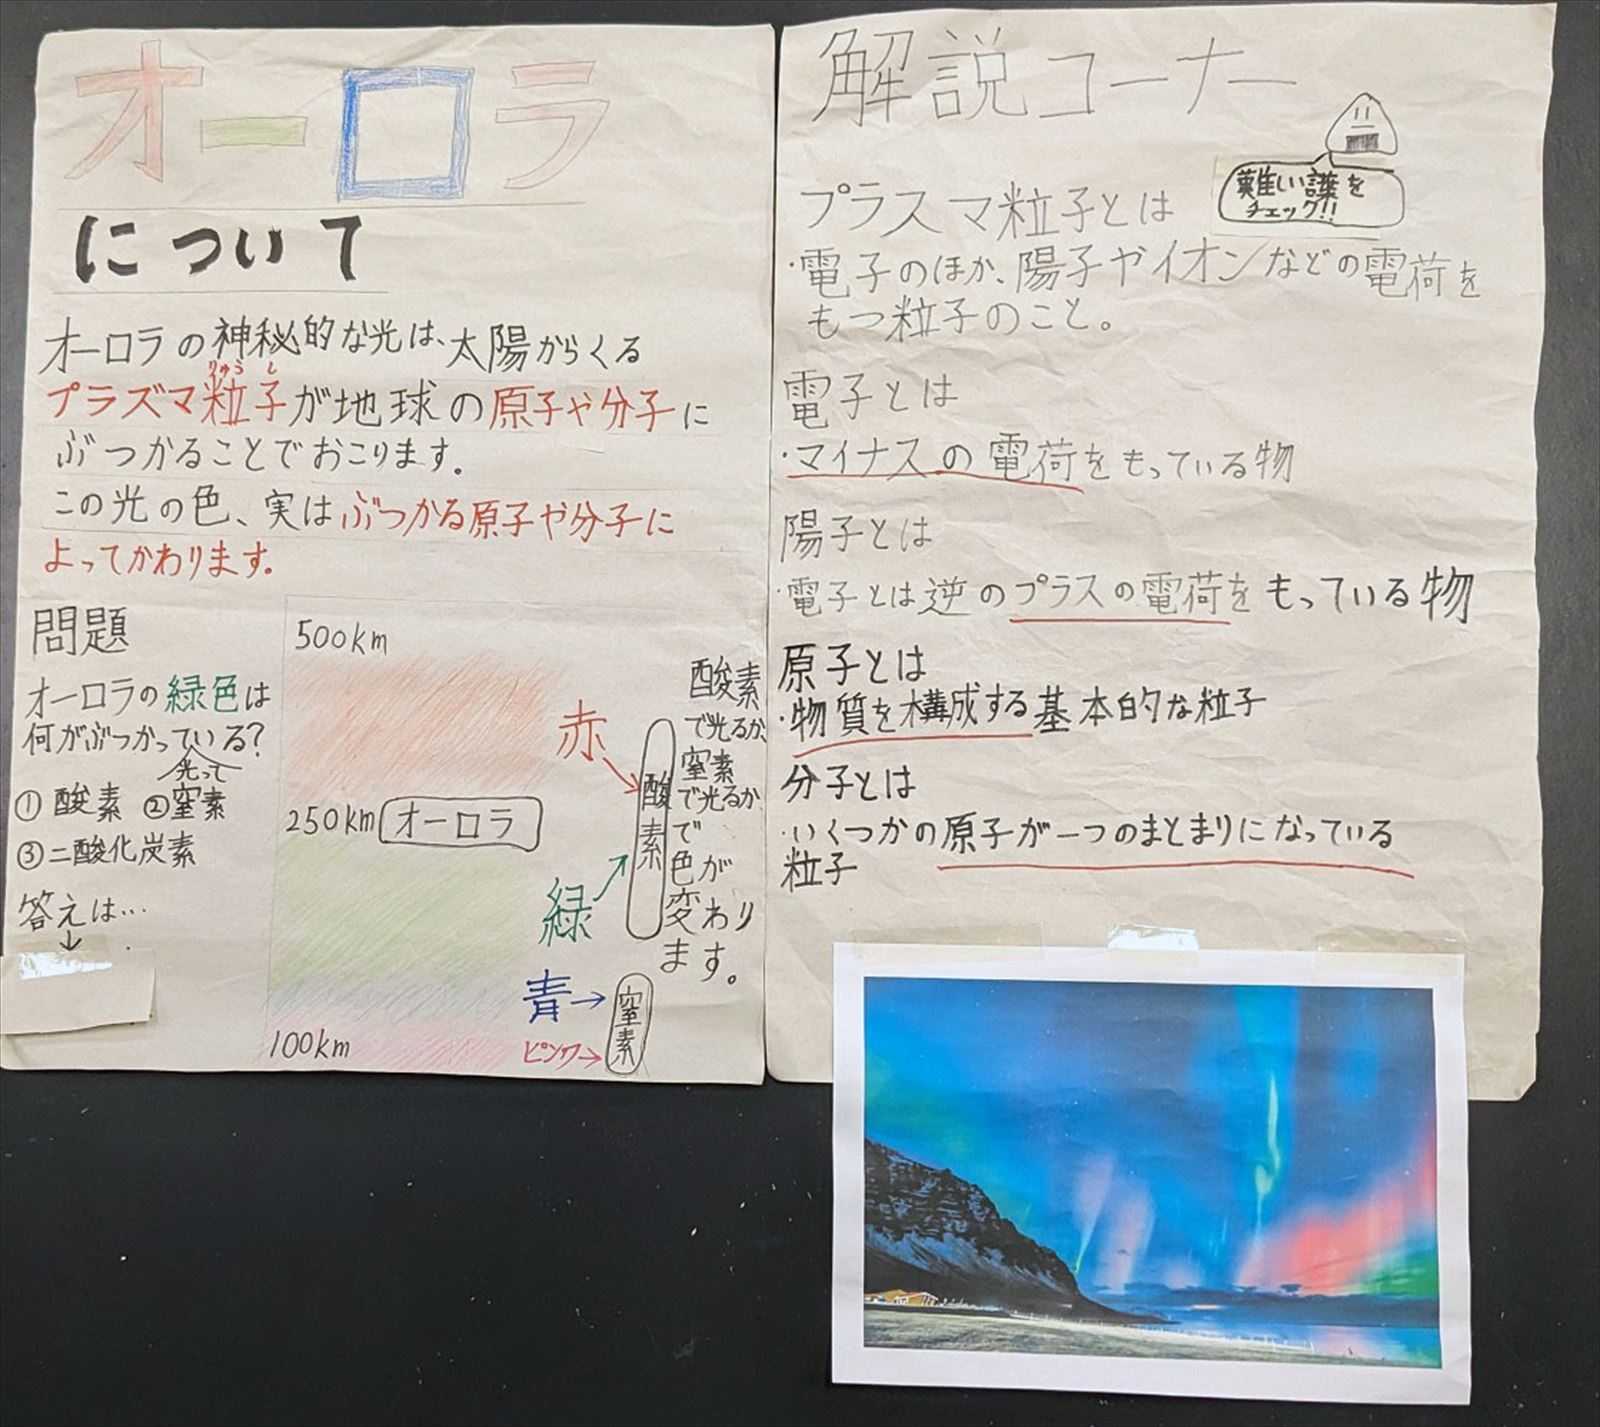 オーロラ
について
オーロラの神秘的な光は、太陽からくる
りゅうし
プラズマ粒子が地球の原子や分子に
ぶつかることでおこります。
この光の色、実はぶつかる原子や分子に
よってかわります。
問題
オーロラの緑色は
何がぶつかっている?
光って
①酸素 ②窒素
③二酸化炭素
答えは…
500km
250km
オーロラ
100km
赤
緑
酸素
青
ピンク
窒素
酸素
で光るか、
窒素
で光るか
で
色が
変わり
ます。
解説コーナー
難しい言葉を
チェック!!
プラスマ粒子とは
・電子のほか、陽子やイオンなどの電荷を
もつ粒子のこと。
電子とは
・マイナスの電荷をもっている物
陽子とは
・電子とは逆のプラスの電荷をもっている物
原子とは
・物質を構成する基本的な粒子
分子とは
・いくつかの原子が一つのまとまりになっている
粒子